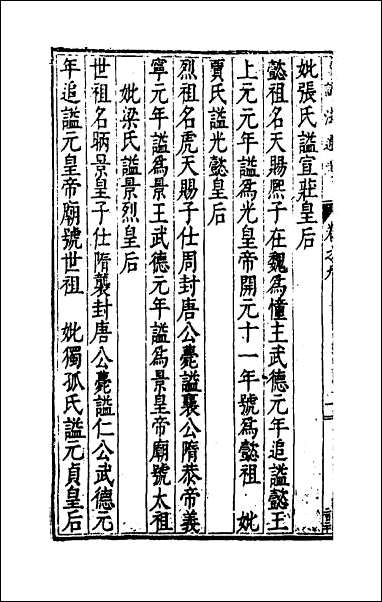 妣張氏謚宣莊皇后
懿祖名天賜熙子在魏爲憧主武德元年追謚懿王
上元元年謚爲光皇帝開元十一年號爲懿祖　妣
賈氏謚光懿皇后
烈祖名虎天賜子仕周封唐公薨謚襄公隋恭帝義
寧元年謚爲景王武德元年謚爲景皇帝廟號太祖
妣梁氏謚景烈皇后
世祖名昞景皇子仕隋襲封唐公薨謚仁公武德元
年追謚元皇帝廟號世祖　妣獨孤氏謚元貞皇后